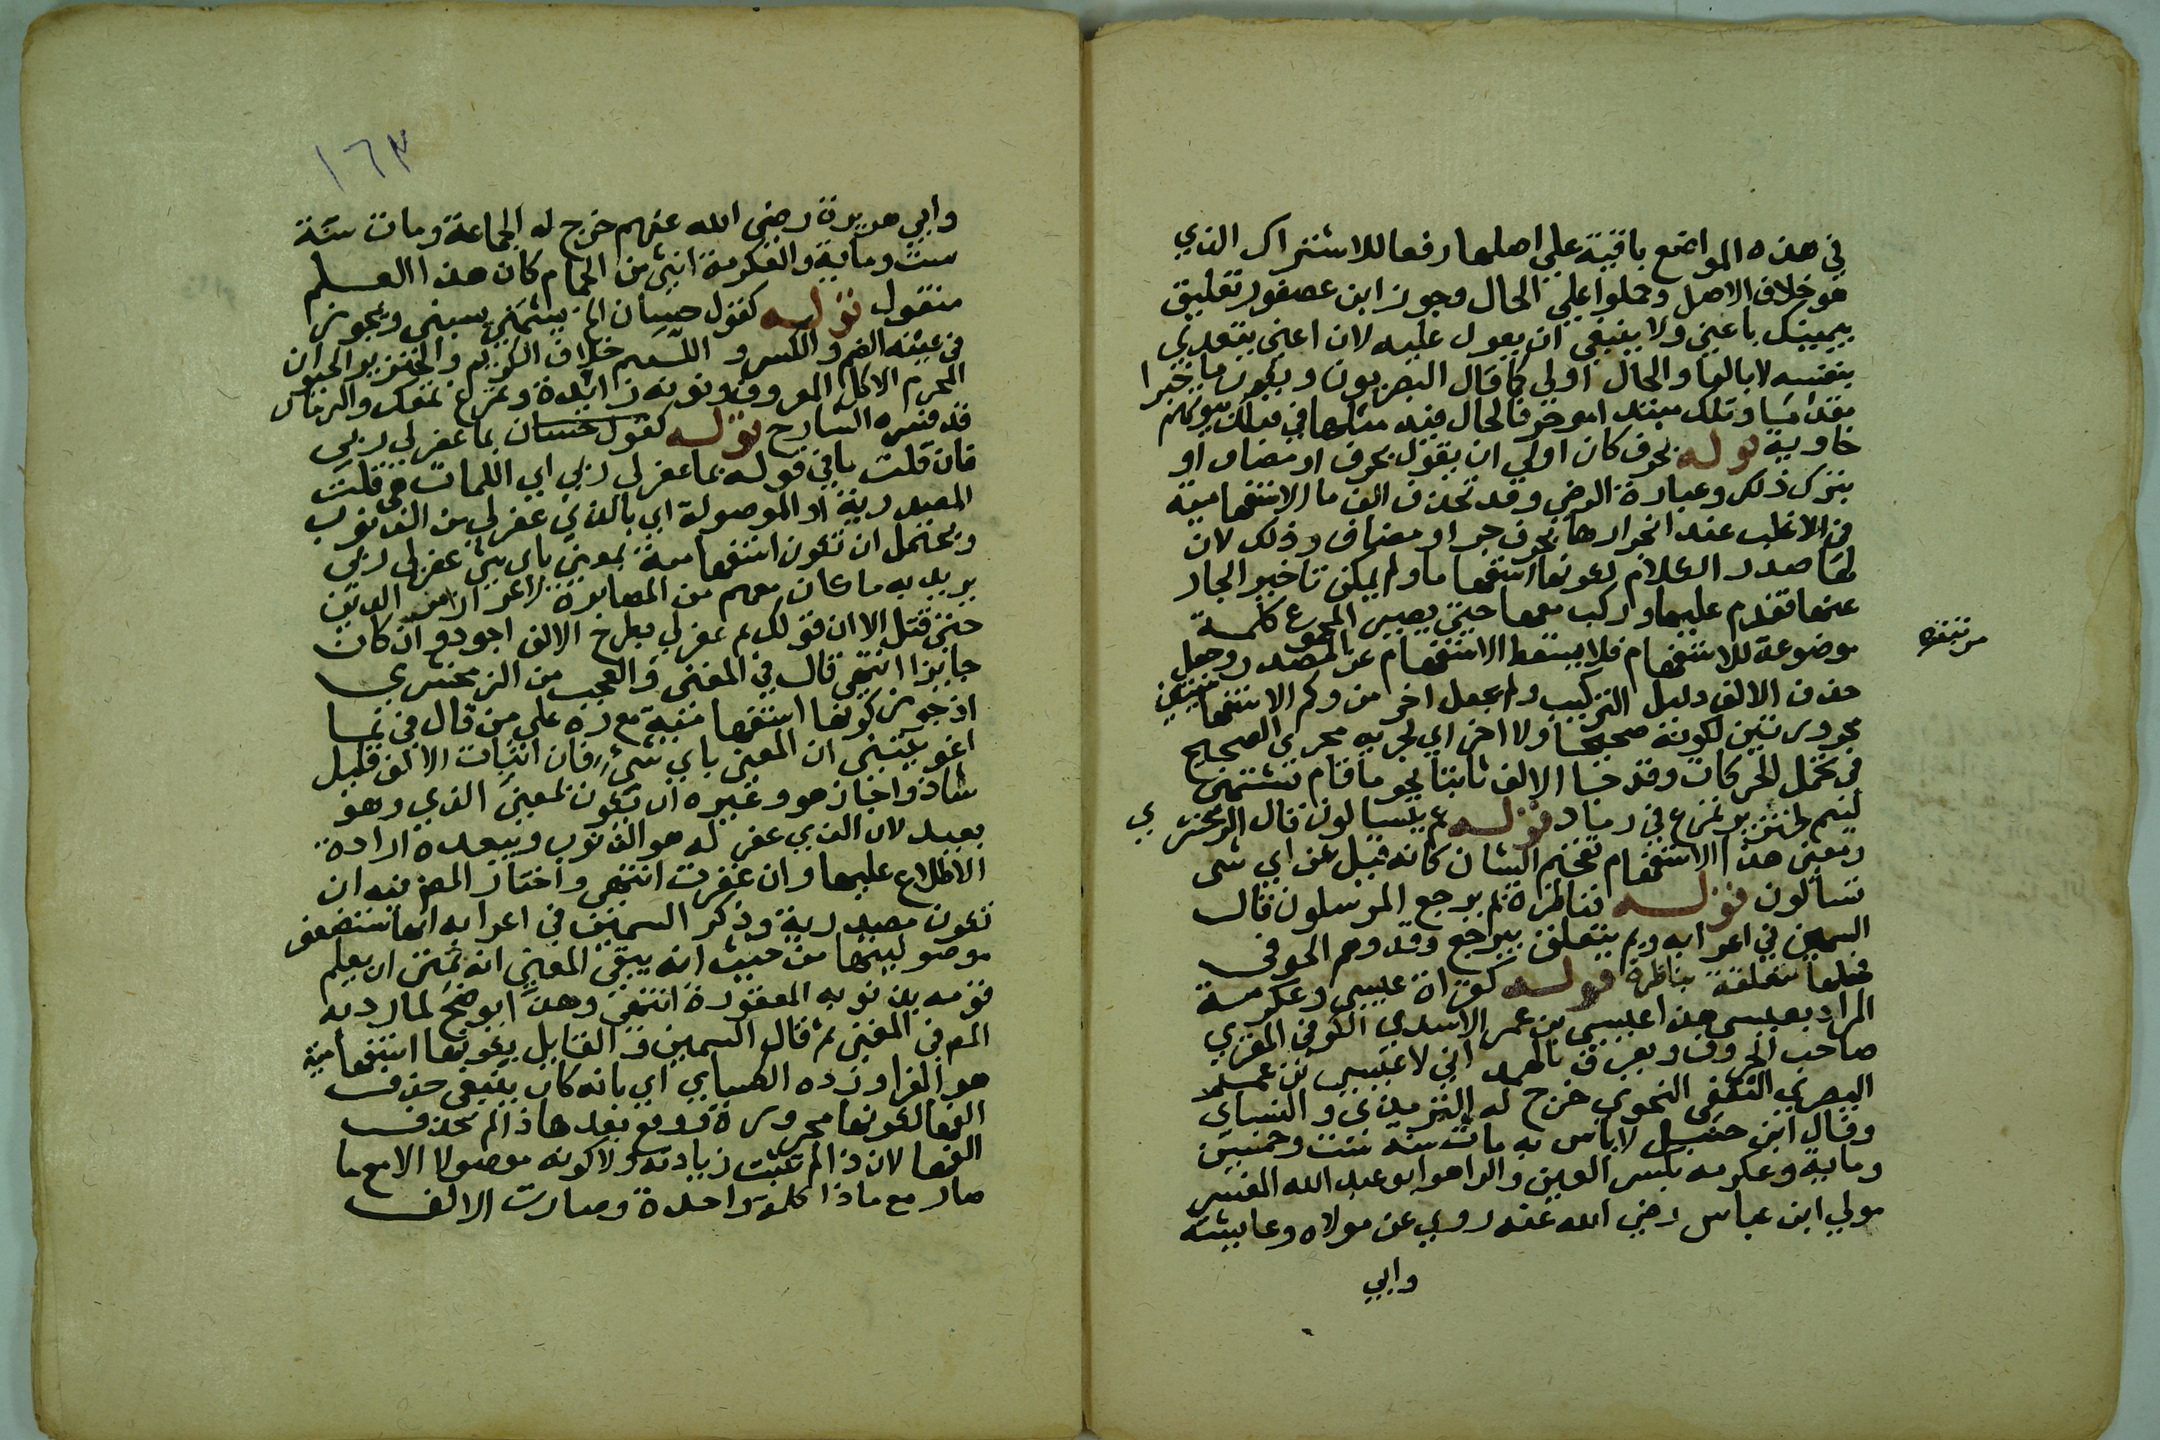 في هذه المواضع باقية على اصلها رفعا للاشتراك الذي
هو خلاف الاصل وحملوا على الحال وجوز ابن عصفور تعليق
بيمينك باعني ولا ينبغي ان يعول عليه لان اعني يتعدي
بنفسه لا بالها والحال اولي كما قال البصريون ويكون ما خبرا
مقدما وتلك مبتدا موخر فالحال فيه مثلها في فتلك بيوتهم
خاوية قوله بحرف كان اولي ان يقول بحرف او مضاف او
يترك ذلك وعبارة الرضي وقد تحذف الف ما الاستفهامية
في الاغلب عند انجرارها بحرف جر او مضاف وذلك لان
لها صدر الكلام لكونها استفهاما ولم يمكن تاخير الجار
عنها فقدم عليها وركب معها حتي يصير المجموع كلمة
موضوعة للاستفهام فلا يسقط الاستفهام عن الصدر وجعل
مرتبته
حذف الالف دليل التركيب ولم يجعل اخر من وكم الاستفهاميتين
مجرورتين لكونه صحيحا ولا اخر اي لجريه مجري الصحيح
في تحمل الحركات وقد جا الالف ثابتا نحو ما قام تشتمني
ليم لخنزير تمرغ في رماد قوله عم يتسالون قال الزمخشري
ومعني هذا الاستفهام تفخيم الشان كانه قيل عن اي شي
تسالون قوله فناظرة بم يرجع المرسلون قال
السمين في اعرابه وبم يتعلق بيرجع وقد وهم الحوفي
فجعلها متعلقة بناظرة قوله كقراة عيسي وعكرمة
المراد بعيسي هذا عيسي بن عمر الاسدي الكوفي المقري
صاحب الحروف ويعرف بالهمداني لا عيسي بن عمر
البصري الثقفي النحوي خرج له الترمذي والنساي
وقال ابن حنبل لا باس به مات سنة ست وخمسين
وماية وعكرمه بكسر العين والرا هو ابو عبد الله المفسر
مولي ابن عباس رضي الله عنه روي عن مولاه وعايشة
وابي
١٦٣
وابي هريرة رضي الله عنهم خرج له الجماعة ومات سنة
ست وماية والعكرمة انثي من الحمام كان هذا العلم
منقول قوله كقول حسان الخ يشتمني يسبني ويجوز
في عينه الضم والكسر و اللئيم خلاف الكريم والخنزير الحيوان
المحرم الاكل المعروف ونونه زائدة وتمرغ تمعك والرماد
قد فسره الشارح قوله كقول حسان بما غفر لي ربي
فان قلت ما في قوله بما غفر لي ربي اي اللمات هي قلت
المصدرية او الموصولة اي بالذي غفر لي من الذنوب
ويحتمل ان تكون استفهامية بمعني باي شي غفر لي ربي
يريد به ما كان معهم من المصابرة لاعزاز الدين
حتي قتل الا ان قولك بم غفر لي بطرح الالف اجود وان كان
جايزا انتهي قال في المغني والعجب من الزمخشري
اذ جوز كونها استفهامية مع رده على من قال في بما
اغويتني ان المعني باي شي فان اثبات الالف قليل
شاذ واجاز هو وغيره ان تكون بمعني الذي وهو
بعيد لان الذي غفر له هو الذنوب ويبعده ارادة
الاطلاع عليها وان غفرت انتهي واختار المص فيه ان
تكون مصدرية وذكر السمين في اعرابه انها استضعف
موصوليتها من حيث انه يبقي المعني انه تمني ان يعلم
قومه بذنوبه المغفورة انتهي وهذا يوضح لما رد به
المص في المغني ثم قال السمين والقايل بكونها استفهامية
هو الفرا ورده الكساي اي بانه كان ينبغي حذف
الفها لكونها مجرورة ووقع بعدها ذا لم تحذف
الفها لان ذا لم تثبت زيادته ولا كونه موصولا الا مع ما
صار مع ماذا كلمة واحدة وصارت الالف